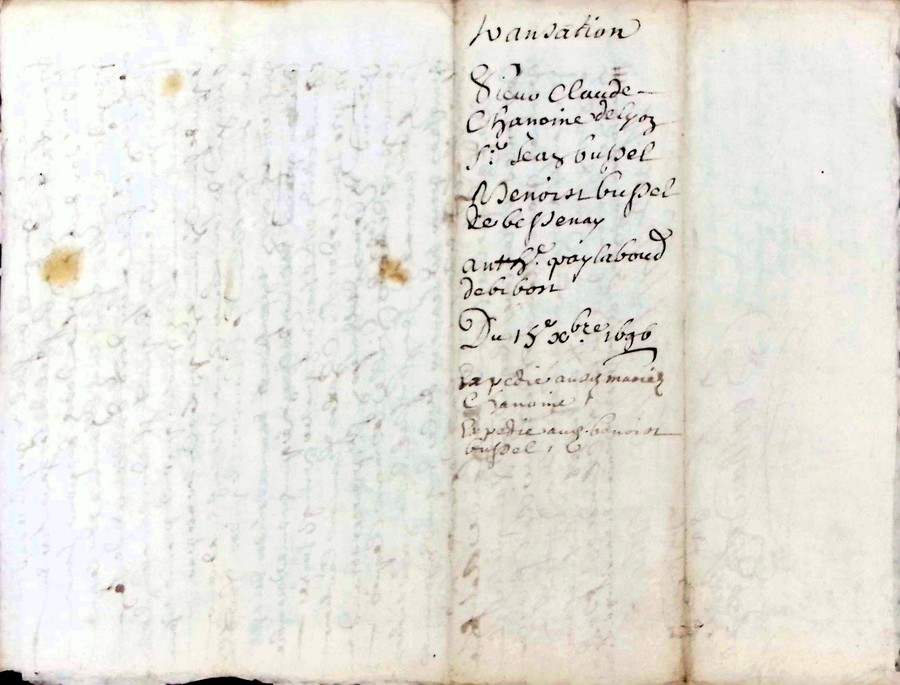 transation
Sieur Claude
Chanoine de lyon
Sr. Jean bussel
Benoist bussel
de bessenay
anthe. paylaboud
de bibost
Du 15e xbre 1696
Expedie aud. mariez
Chanoine
Expedie aud. benoist
bussel